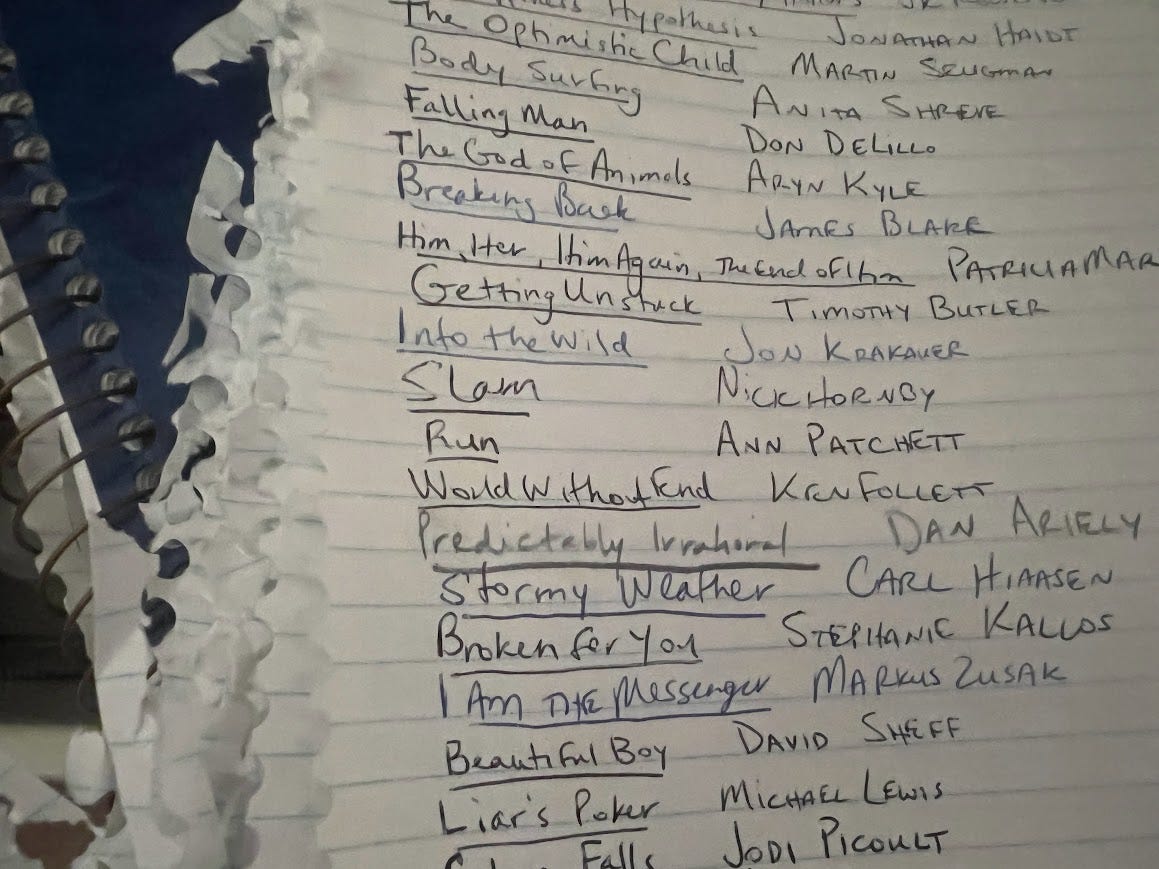 Hypothesis JONATHAN HAIDT
The Optimistic Child MARTIN SELIGMAN
Body Surfing ANITA SHREVE
Falling Man DON DELILLO
The God of Animals ARYN KYLE
Breaking Back JAMES BLAKE
Him, Her, Him Again, The End of Him PATRICIA MAR
Getting Unstuck TIMOTHY BUTLER
Into the Wild JON KRAKAUER
Slam NICK HORNBY
Run ANN PATCHETT
World Without End KEN FOLLETT
Predictably Irrational DAN ARIELY
Stormy Weather CARL HIAASEN
Broken for You STEPHANIE KALLOS
I Am THE Messenger MARKUS ZUSAK
Beautiful Boy DAVID SHEFF
Liar's Poker MICHAEL LEWIS
Falls JODI PICOULT